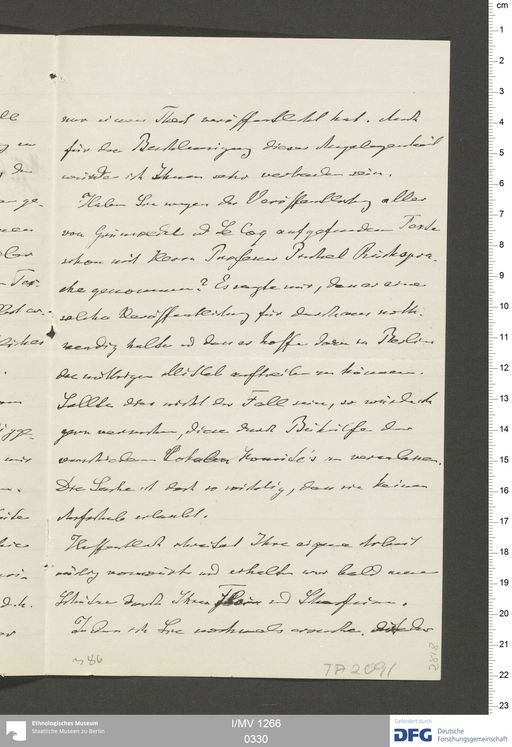 nur einen Theil veröffentlicht hat. Auch
für die Beschleunigung dieser Angelegenheit
würde ich Ihnen sehr verbunden sein.
Haben Sie wegen der Veröffentlichung aller
von Grünwedel u Le Coq aufgefundenen Texte
schon mit Herrn Professor Pischel Rückspra-
che genommen? Er sagte mir, dass er eine
solche Veröffentlichung für durchaus noth-
wendig halte u dass er hoffe darin in Berlin
die nöthigen Mittel auftreiben zu können.
Sollte dies nicht der Fall sein, so würde ich
gern versuchen, diese durch Beihülfe der
verschiedenen Lokalen Komité's zu
Die Sache ist doch so wichtig, dass sie keinen
Aufschub erlaubt.
Hoffentlich schreitet Ihre eigene Arbeit
rüstig vorwärts und erhalten wir bald neue
Schätze durch Ihren und
Indem ich Sie nochmals ersuche, der
TA 2091
cm
1
2
3
4
5
6
7
8
9
10
11
12
13
14
15
16
17
18
19
20
21
22
23
Ethnologisches Museum
Staatliche Museen zu Berlin
I/MV 1266
0330
Gefördert durch
DFG Deutsche
Forschungsgemeinschaft